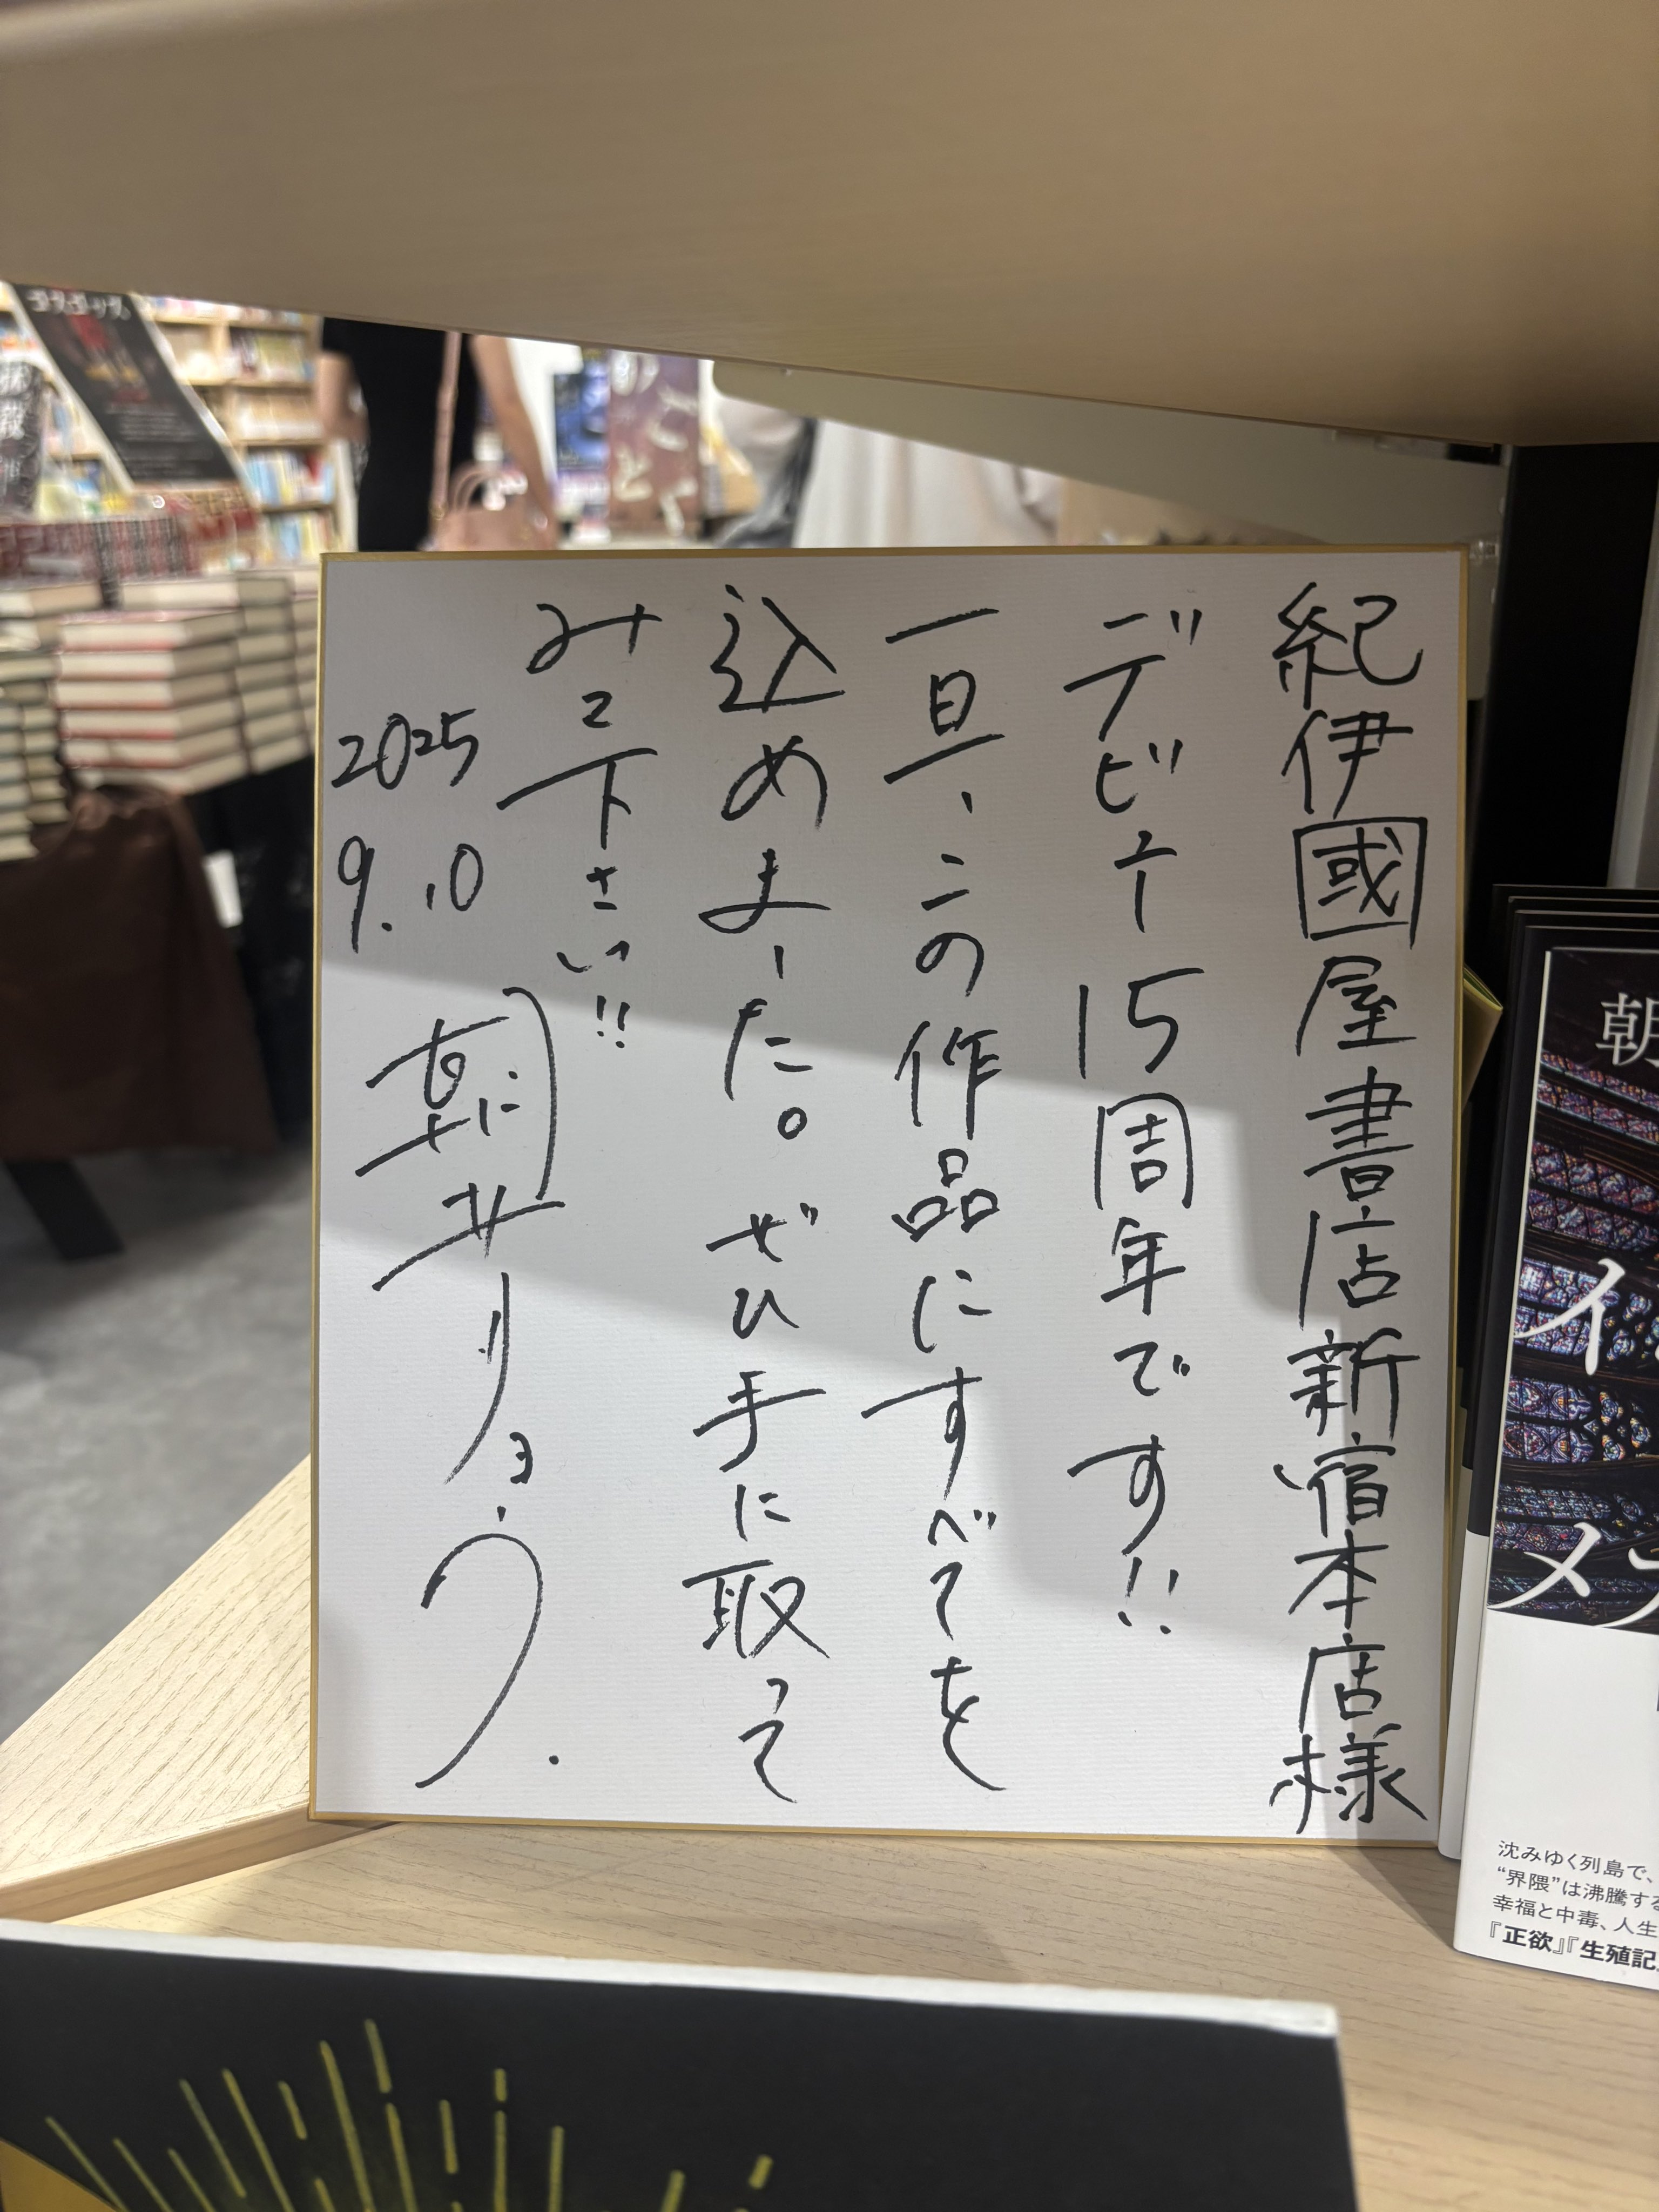 紀伊國屋書店新宿本店様
デビュー15周年です!!
一旦、この作品にすべてを
込めました。ぜひ手に取って
みて下さい!!
2025
9.10
朝井リョウ.
朝
イ
メ
沈みゆく列島で、
“界隈”は沸騰する
幸福と中毒、人生
『正欲』『生殖記』